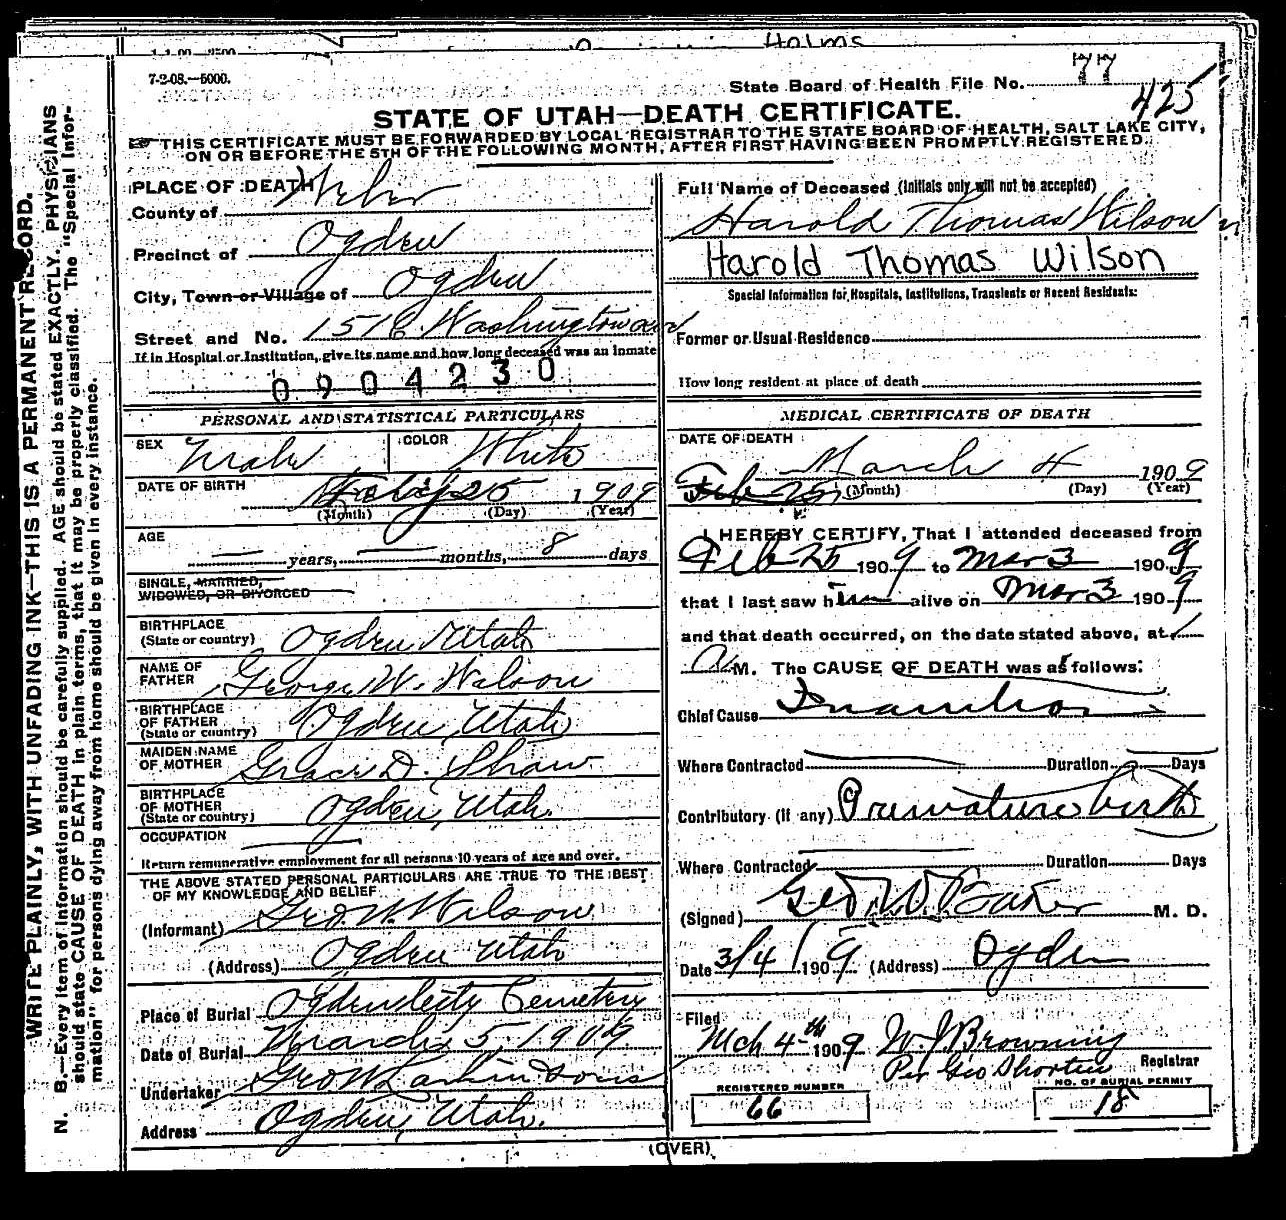 Holms
7-2-08.—5000.
State Board of Health File No. 77
425
STATE OF UTAH—DEATH CERTIFICATE.
THIS CERTIFICATE MUST BE FORWARDED BY LOCAL REGISTRAR TO THE STATE BOARD OF HEALTH, SALT LAKE CITY,
ON OR BEFORE THE 5TH OF THE FOLLOWING MONTH, AFTER FIRST HAVING BEEN PROMPTLY REGISTERED.
WRITE PLAINLY, WITH UNFADING INK—THIS IS A PERMANENT RECORD.
N. B.—Every item of information should be carefully supplied. AGE should be stated EXACTLY. PHYSICIANS
should state CAUSE OF DEATH in plain terms, that it may be properly classified. The "Special Infor-
mation" for persons dying away from home should be given in every instance.
PLACE OF DEATH
County of Weber
Precinct of Ogden
City, Town or Village of Ogden
Street and No. Washington
If in Hospital or Institution, give its name and how long deceased was an inmate
0904230
PERSONAL AND STATISTICAL PARTICULARS
SEX Male COLOR White
DATE OF BIRTH Feby 25 1909
(Month) (Day) (Year)
AGE
— years, — months, 8 days
SINGLE, MARRIED,
WIDOWED, OR DIVORCED
BIRTHPLACE
(State or country) Ogden Utah
NAME OF
FATHER George W. Wilson
BIRTHPLACE
OF FATHER
(State or country) Ogden, Utah
MAIDEN NAME
OF MOTHER Grace D. Shaw
BIRTHPLACE
OF MOTHER
(State or country) Ogden, Utah.
OCCUPATION —
Return remunerative employment for all persons 10 years of age and over.
THE ABOVE STATED PERSONAL PARTICULARS ARE TRUE TO THE BEST
OF MY KNOWLEDGE AND BELIEF
(Informant) Geo. W. Wilson
(Address) Ogden Utah
Place of Burial Ogden City Cemetery
Date of Burial March 5. 1909
Undertaker Geo W Larkin & Sons
Address Ogden, Utah.
Full Name of Deceased (Initials only will not be accepted)
Harold Thomas Wilson
Harold Thomas Wilson
Special Information for Hospitals, Institutions, Transients or Recent Residents:
Former or Usual Residence
How long resident at place of death
MEDICAL CERTIFICATE OF DEATH
DATE OF DEATH
March 4 1909
Feb 25 (Month) (Day) (Year)
I HEREBY CERTIFY, That I attended deceased from
Feb 25 1909 to Mar 3 1909
that I last saw him alive on Mar 3 1909
and that death occurred, on the date stated above, at 1
A M. The CAUSE OF DEATH was as follows:
Chief Cause Inanition
Where Contracted — Duration — Days
Contributory (if any) Premature birth
Where Contracted — Duration Days
(Signed) Geo. W. Baker M. D.
Date 3/4/1909 (Address) Ogden
Filed
Mch 4th 1909 W. J. Browning
Per Geo Shorten Registrar
REGISTERED NUMBER
66
NO. OF BURIAL PERMIT
18
(OVER)